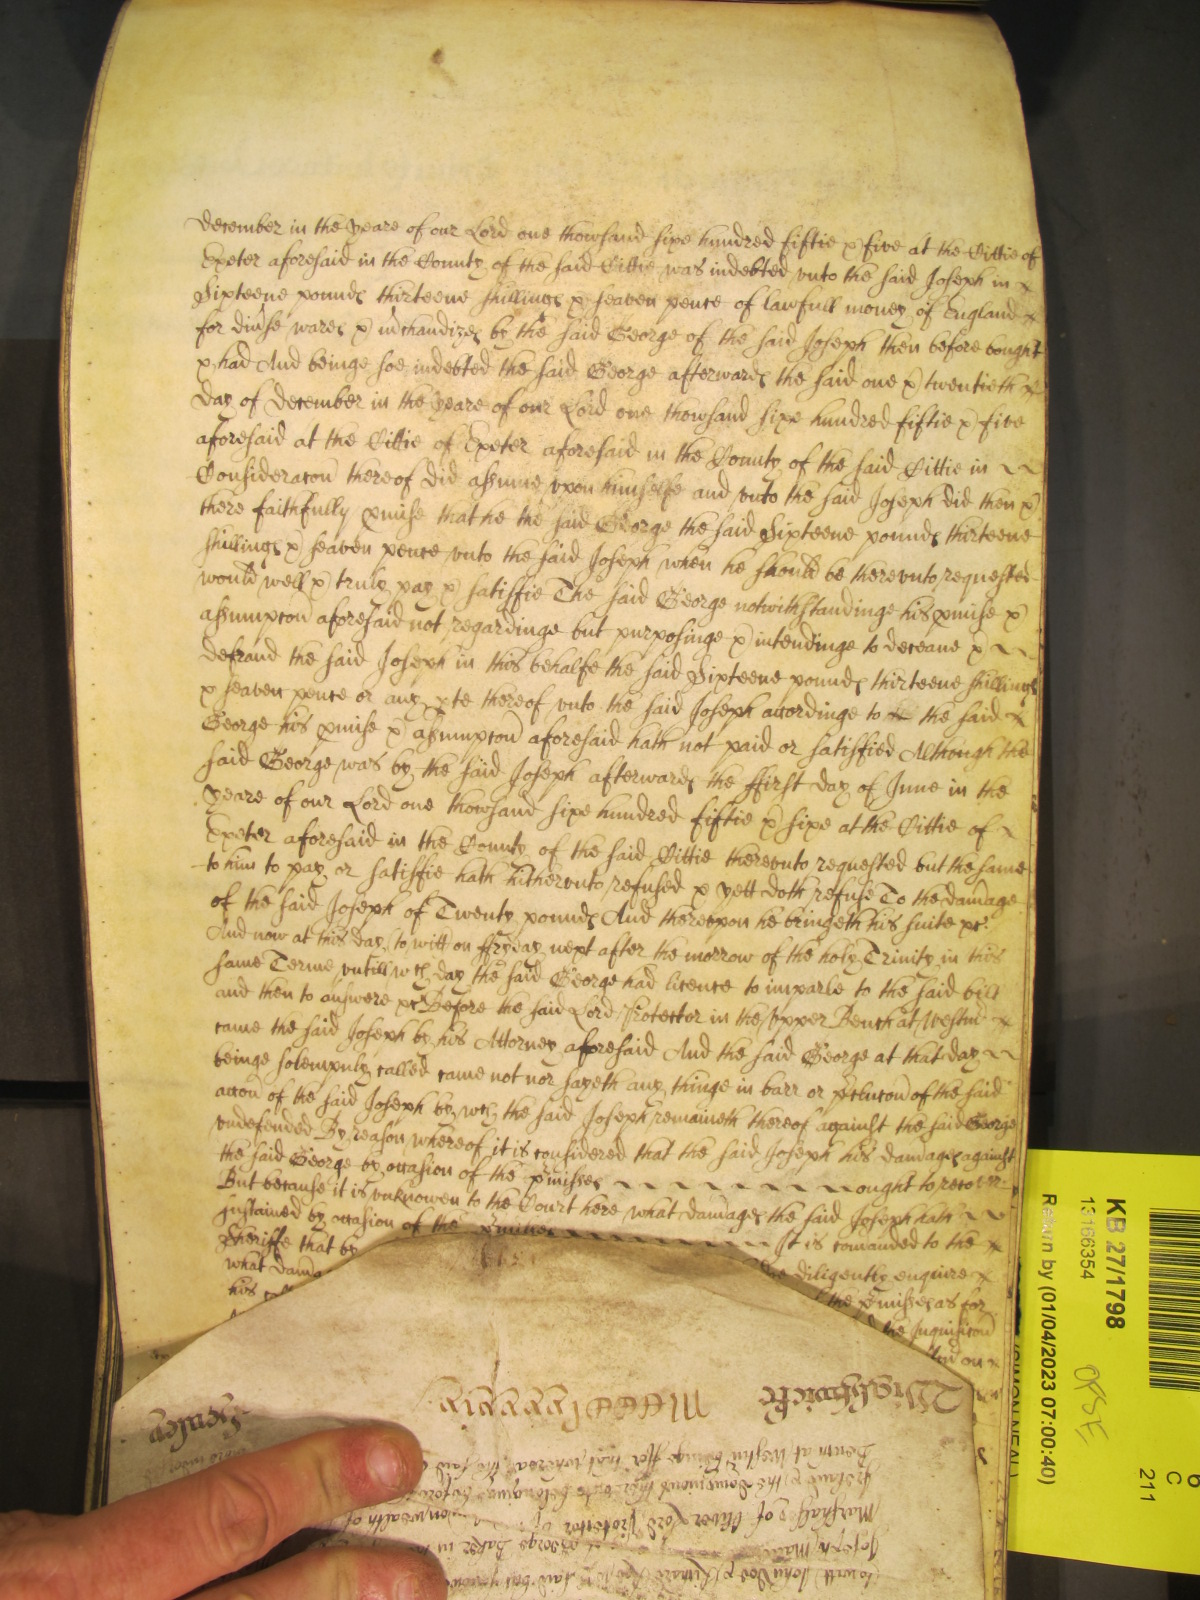 december in the yeare of our Lord one thowsand sixe hundred fiftie & five at the Cittie of
Exeter aforesaid in the County of the said Cittie was indebted unto the said Joseph in
Sixteene pounds thirteene shillings & seaven pence of lawfull money of England
for div'se wares & m'chandizes by the said George of the said Joseph then before bought
& had And beinge soe indebted the said George afterwards the said one & twentieth
day of december in the yeare of our Lord one thowsand sixe hundred fiftie & five
aforesaid at the Cittie of Exeter aforesaid in the County of the said Cittie in
Consideracon thereof did assume upon himselfe and unto the said Joseph did then &
there faithfully pmise that he the said George the said Sixteene pounds thirteene
shillings & seaven pence unto the said Joseph when he should be thereunto requested
would well & truly pay & satisfie The said George notwithstandinge his pmise &
assumpcon aforesaid not regardinge but purposinge & intendinge to deceave &
defraud the said Joseph in this behalfe the said Sixteene pounds thirteene shillings
& seaven pence or any pte thereof unto the said Joseph accordinge to the said
George his pmise & assumpcon aforesaid hath not paid or satisfied Although the
said George was by the said Joseph afterwards the ffirst day of June in the
yeare of our Lord one thowsand sixe hundred fiftie & sixe at the Cittie of
Exeter aforesaid in the County of the said Cittie thereunto requested but the same
to him to pay or satisfie hath hitherunto refused & yett doth refuse To the damage
of the said Joseph of Twenty pounds And thereupon he bringeth his suite &c
And now at this day (to witt) on ffryday next after the morrow of the holy Trinity in this
same Terme untill wch day the said George had licence to imparle to the said bill
and then to answere &c Before the said Lord Protector in the Upper Bench at Westm'
came the said Joseph by his Attorney aforesaid And the said George at that day
beinge solempnly called came not nor sayeth any thinge in barr or p'clucon of the said
accon of the said Joseph by wch the said Joseph remaineth thereof against the said George
undefended By reason whereof it is considered that the said Joseph his damages against
the said George by occasion of the p'misses ought to recover
But because it is unknowen to the Court here what damages the said Joseph hath
sustained by occasion of the p'misses It is comanded to the
Sheriffe that by diligently enquire
what dam the p'misses as for
his the Inquisicon
on
Wightwicke
Joseph
George Baker in
Marshall of Oliver Lord Protector of Comonwealth of
Ireland & the dominions
Bench at Westm' beinge
KB 27/1798
13166354
Return by (01/04/2023 07:00:40)
(SIMON NEAL)
6
C
211